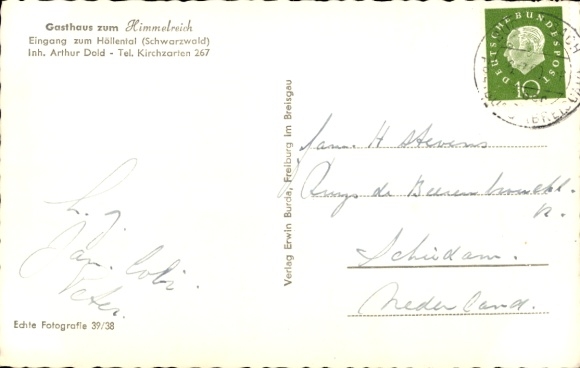 Gasthaus zum Himmelreich
Eingang zum Höllental (Schwarzwald)
Inh. Arthur Dold - Tel. Kirchzarten 267
DEUTSCHE BUNDESPOST
10
Verlag Erwin Burda, Freiburg im Breisgau
Fam. H Stevens
Ruys de Beerenbrouckl.
Schiedam.
Nederland.
Echte Fotografie 39/38